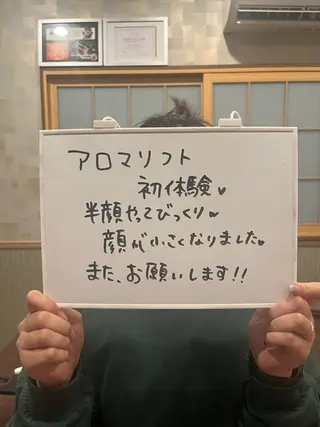 アロマリフト
初体験♥
半顔やってびっくり♥
顔が小さくなりました♥
また、お願いします!!